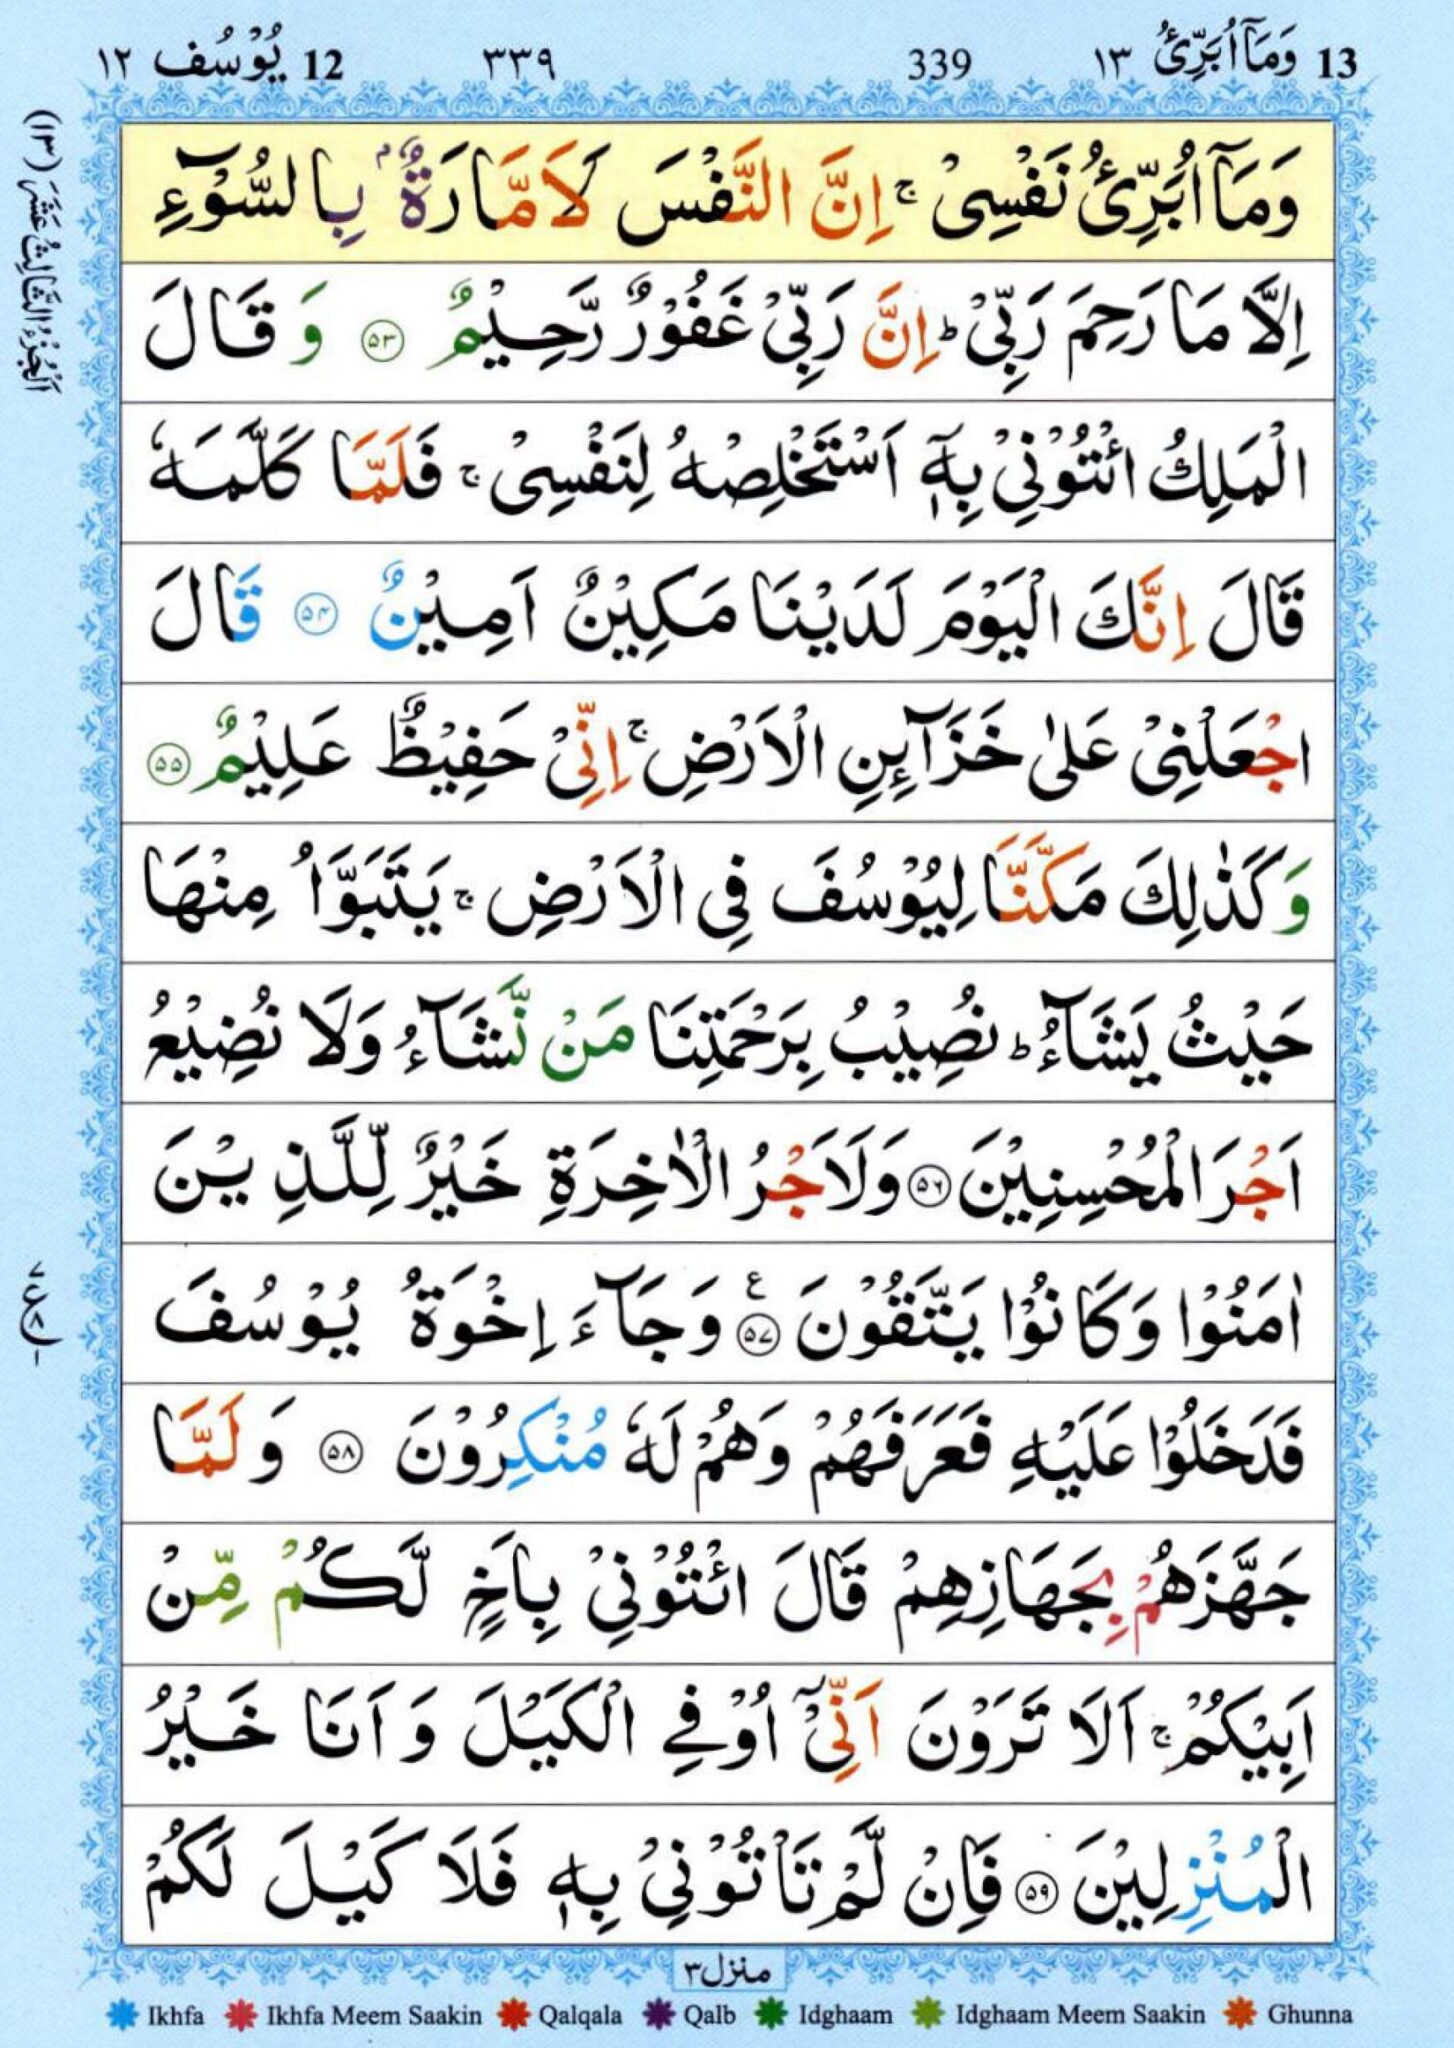 13 وَمَاۤ اُبَرِّئُ ١٣ 339 ٣٣٩ 12 يُوْسُف ١٢
وَمَاۤ اُبَرِّئُ نَفْسِیْ ۚ اِنَّ النَّفْسَ لَاَمَّارَةٌۢ بِالسُّوْٓءِ
اِلَّا مَا رَحِمَ رَبِّیْ ؕ اِنَّ رَبِّیْ غَفُوْرٌ رَّحِیْمٌ ۝۵۳ وَ قَالَ
الْمَلِكُ ائْتُوْنِیْ بِهٖۤ اَسْتَخْلِصْهُ لِنَفْسِیْ ۚ فَلَمَّا كَلَّمَهٗ
قَالَ اِنَّكَ الْیَوْمَ لَدَیْنَا مَكِیْنٌ اَمِیْنٌ ۝۵۴ قَالَ
اجْعَلْنِیْ عَلٰی خَزَآئِنِ الْاَرْضِ ۚ اِنِّیْ حَفِیْظٌ عَلِیْمٌ ۝۵۵
وَ كَذٰلِكَ مَكَّنَّا لِیُوْسُفَ فِی الْاَرْضِ ۚ یَتَبَوَّاُ مِنْهَا
حَیْثُ یَشَآءُ ؕ نُصِیْبُ بِرَحْمَتِنَا مَنْ نَّشَآءُ وَلَا نُضِیْعُ
اَجْرَ الْمُحْسِنِیْنَ ۝۵۶ وَلَاَجْرُ الْاٰخِرَةِ خَیْرٌ لِّلَّذِیْنَ
اٰمَنُوْا وَكَانُوْا یَتَّقُوْنَ ۝۵۷ ع وَجَآءَ اِخْوَةُ یُوْسُفَ
فَدَخَلُوْا عَلَیْهِ فَعَرَفَهُمْ وَهُمْ لَهٗ مُنْكِرُوْنَ ۝۵۸ وَ لَمَّا
جَهَّزَهُمْ بِجَهَازِهِمْ قَالَ ائْتُوْنِیْ بِاَخٍ لَّكُمْ مِّنْ
اَبِیْكُمْ ۚ اَلَا تَرَوْنَ اَنِّیْۤ اُوْفِی الْكَیْلَ وَ اَنَا خَیْرُ
الْمُنْزِلِیْنَ ۝۵۹ فَاِنْ لَّمْ تَاْتُوْنِیْ بِهٖ فَلَا كَیْلَ لَكُمْ
اَلْجُزْءُ الثَّالِثُ عَشَرَ (١٣)
منزل ٣
Ikhfa Ikhfa Meem Saakin Qalqala Qalb Idghaam Idghaam Meem Saakin Ghunna